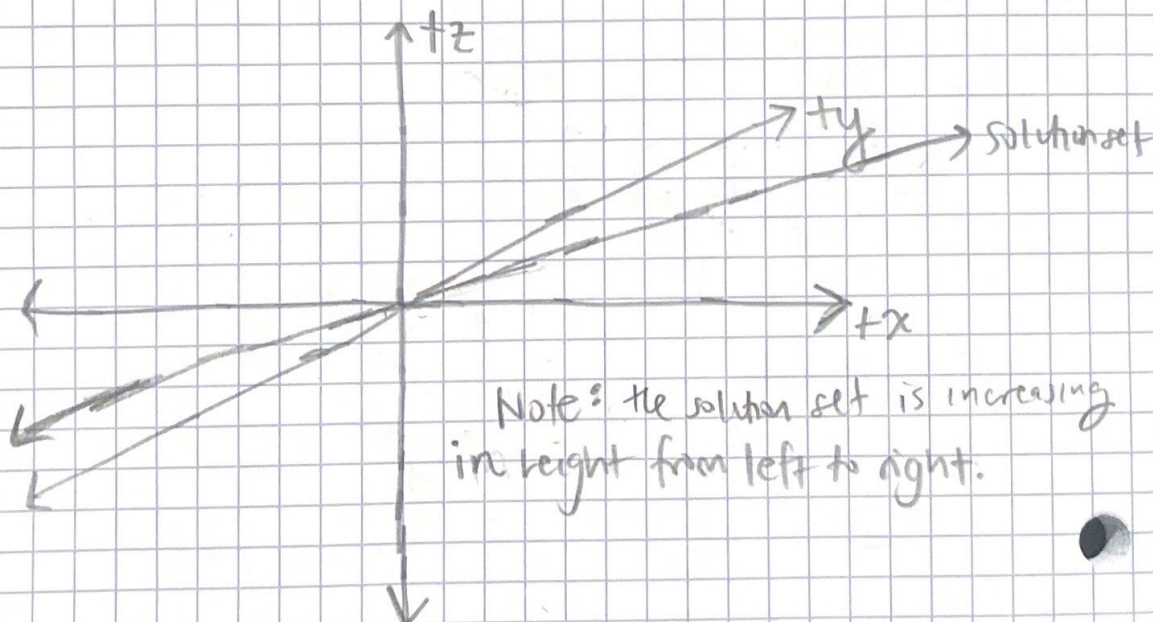 +z
+y
solution set
+x
Note: the solution set is increasing
in height from left to right.